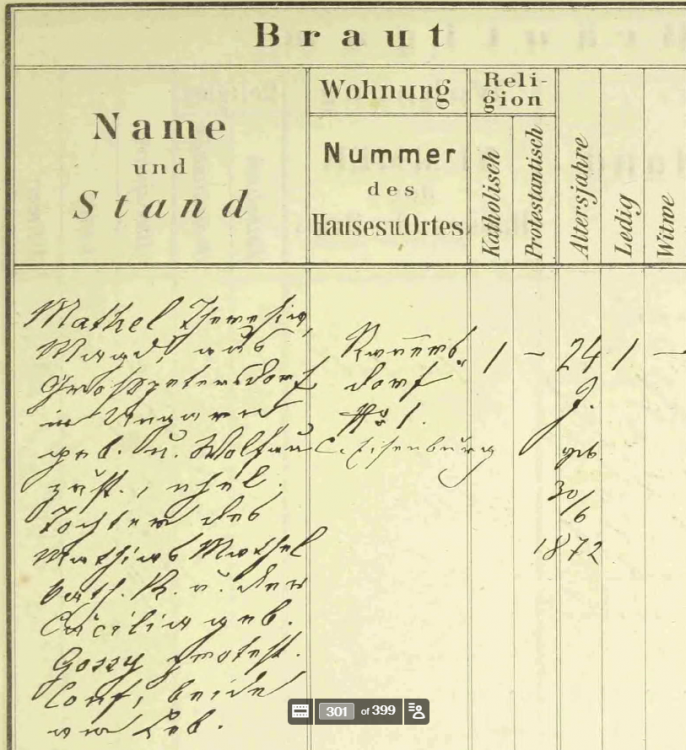 Braut
Name
und
Stand
Wohnung
Nummer
des
Hauses u. Ortes
Reli-
gion
Katholisch
Protestantisch
Altersjahre
Ledig
Witwe
Mathel Theresia,
Magd, aus
Großpetersdorf
in Ungarn
geb. u. Wolfau
zust., ehel.
Tochter des
Mathias Mathel
kath. R. u. der
Cäcilia geb.
Gossy protest.
Conf., beide
am Leb.
dorf
No 1.
C. Eisenburg
1
–
24
J.
geb.
30/6
1872
1
–
301 of 399